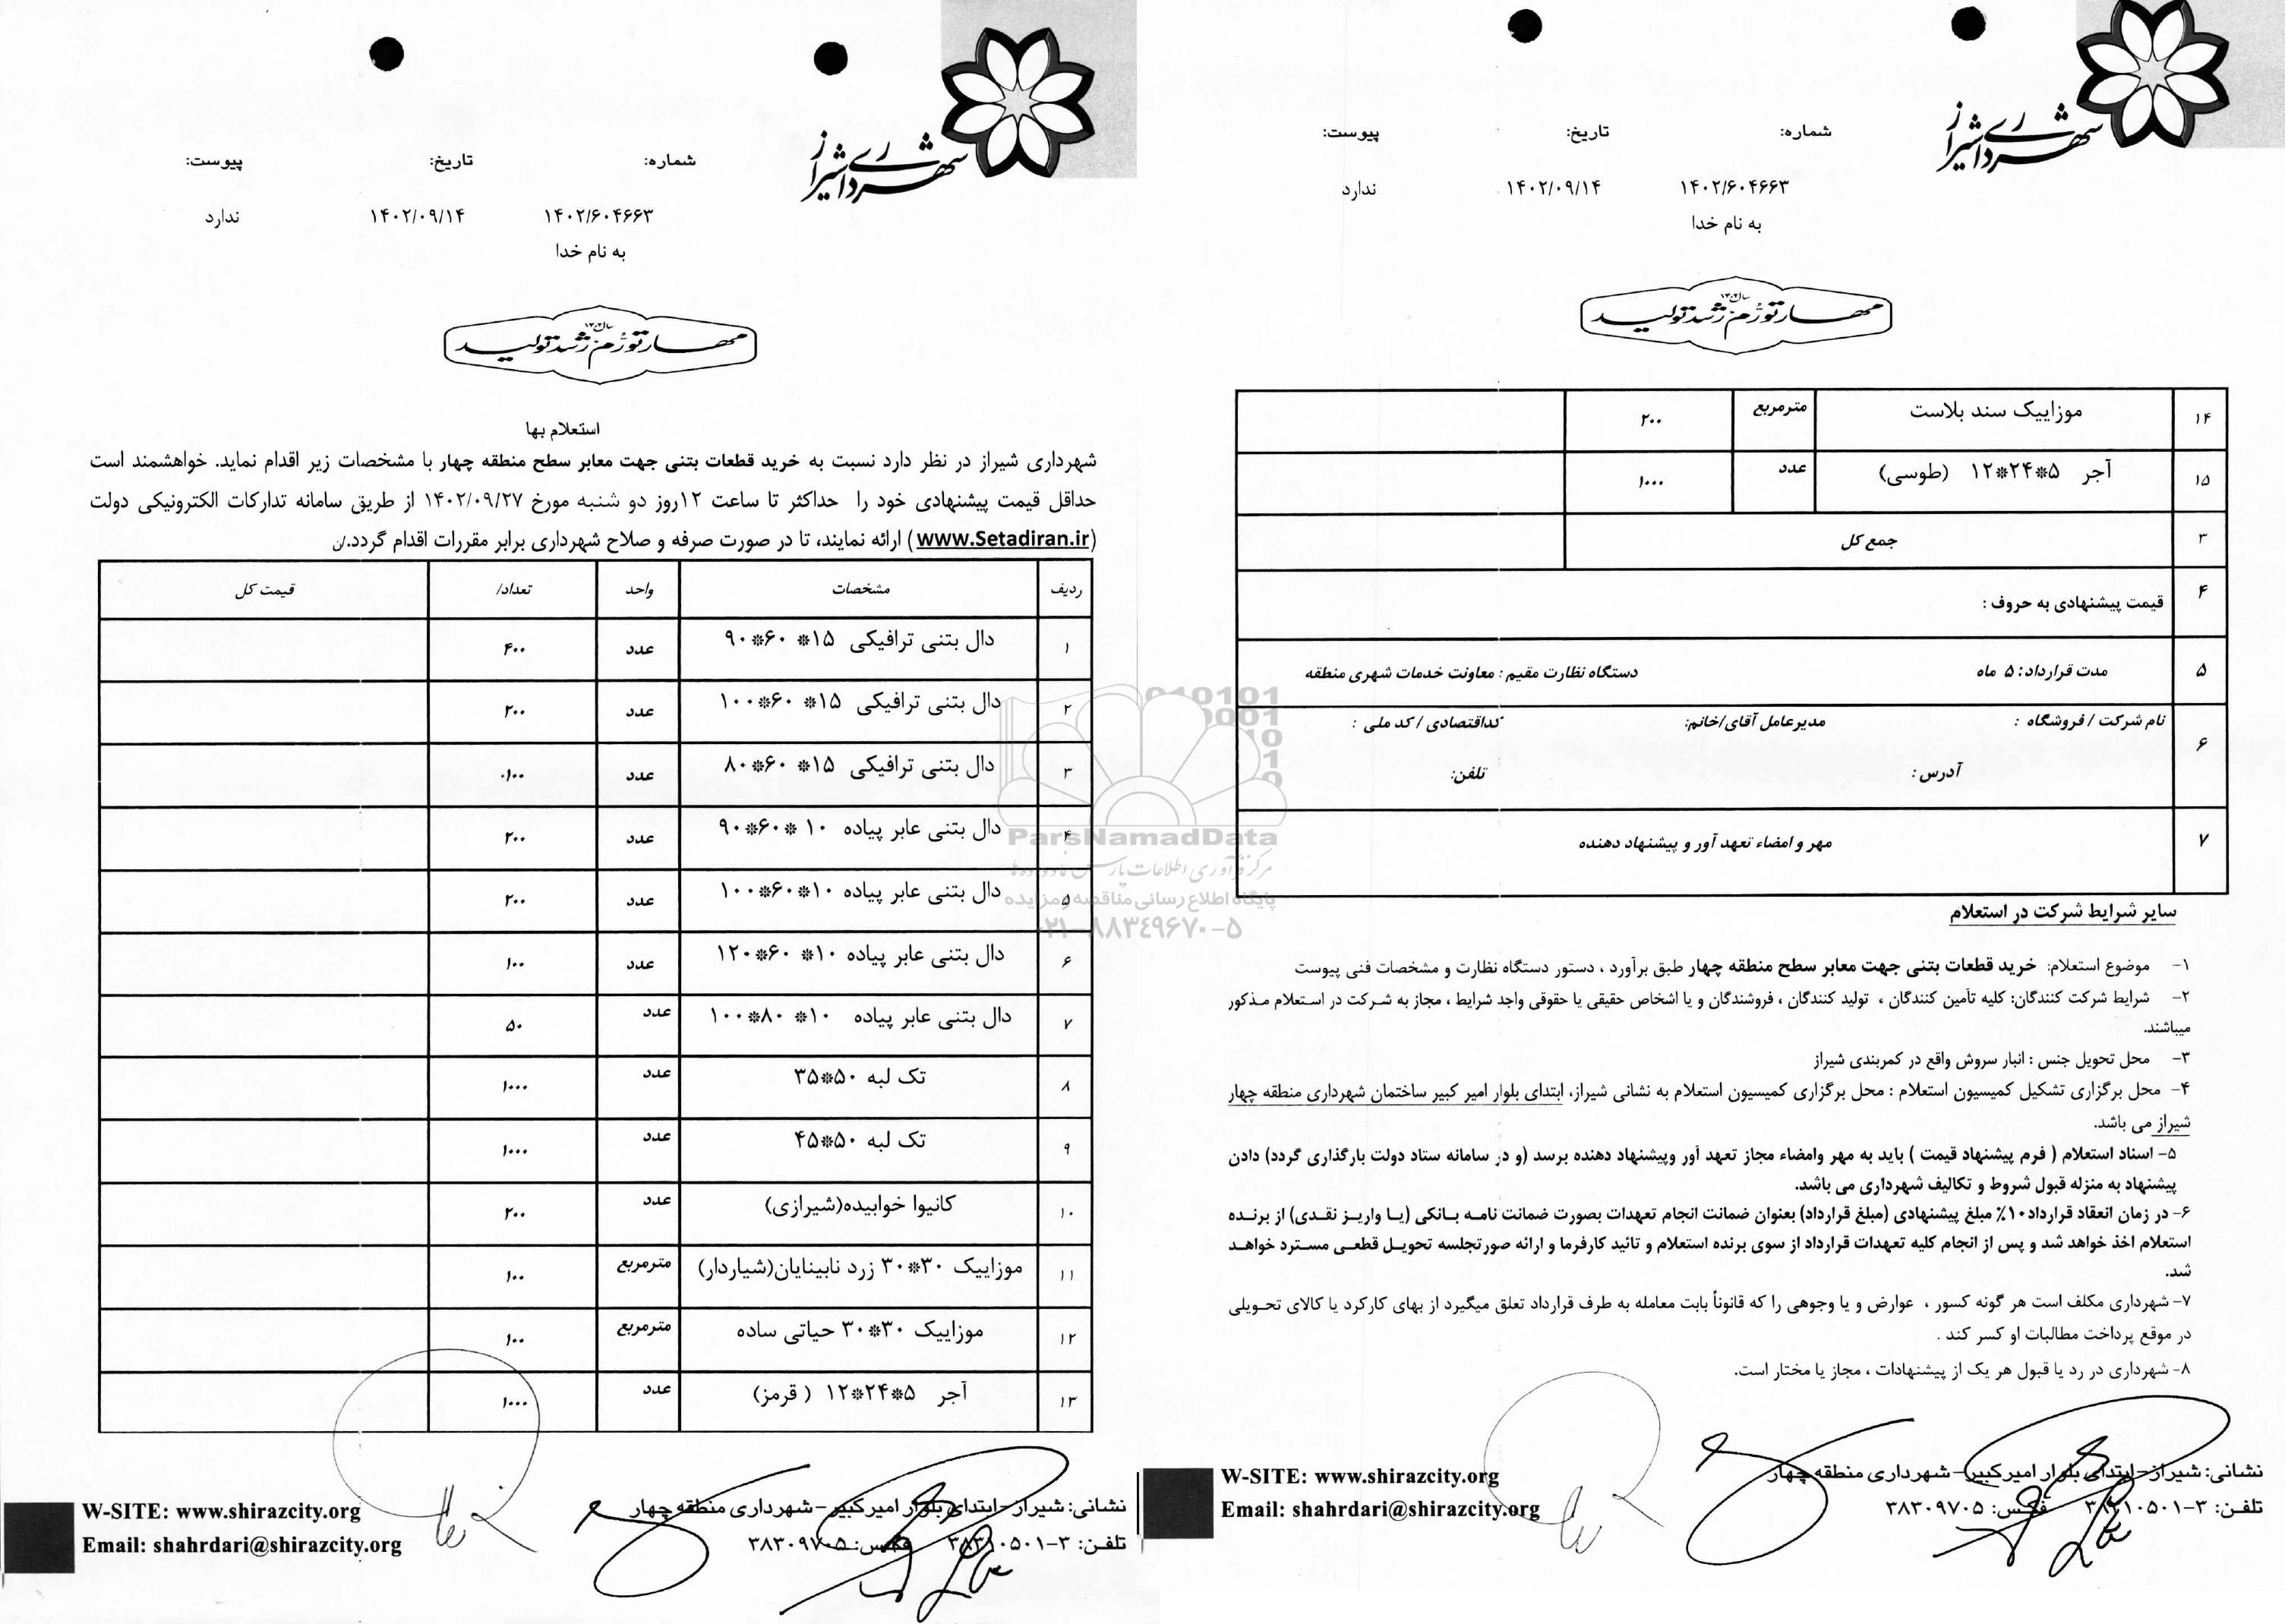 شهرداری شیراز
شماره: تاریخ: پیوست:
۱۴۰۲/۶۰۴۶۶۳ ۱۴۰۲/۰۹/۱۴ ندارد
به نام خدا
سال ۱۴۰۲
مهار تورم، رشد تولید
استعلام بها
شهرداری شیراز در نظر دارد نسبت به خرید قطعات بتنی جهت معابر سطح منطقه چهار با مشخصات زیر اقدام نماید. خواهشمند است
حداقل قیمت پیشنهادی خود را حداکثر تا ساعت ۱۲روز دو شنبه مورخ ۱۴۰۲/۰۹/۲۷ از طریق سامانه تدارکات الکترونیکی دولت
(www.Setadiran.ir) ارائه نمایند، تا در صورت صرفه و صلاح شهرداری برابر مقررات اقدام گردد./ن
ردیف مشخصات واحد تعداد/ قیمت کل
۱ دال بتنی ترافیکی ۱۵* ۶۰*۹۰ عدد ۴۰۰
۲ دال بتنی ترافیکی ۱۵* ۶۰*۱۰۰ عدد ۲۰۰
۳ دال بتنی ترافیکی ۱۵* ۶۰*۸۰ عدد ۱۰۰۰
۴ دال بتنی عابر پیاده ۱۰ *۶۰*۹۰ عدد ۲۰۰
۵ دال بتنی عابر پیاده ۱۰*۶۰*۱۰۰ عدد ۲۰۰
۶ دال بتنی عابر پیاده ۱۰* ۶۰*۱۲۰ عدد ۱۰۰
۷ دال بتنی عابر پیاده ۱۰* ۸۰*۱۰۰ عدد ۵۰
۸ تک لبه ۵۰*۳۵ عدد ۱۰۰۰
۹ تک لبه ۵۰*۴۵ عدد ۱۰۰۰
۱۰ کانیوا خوابیده(شیرازی) عدد ۲۰۰
۱۱ موزاییک ۳۰*۳۰ زرد نابینایان(شیاردار) مترمربع ۱۰۰
۱۲ موزاییک ۳۰*۳۰ حیاتی ساده مترمربع ۱۰۰
۱۳ آجر ۵*۲۴*۱۲ (قرمز) عدد ۱۰۰۰
نشانی: شیراز-ابتدای بلوار امیرکبیر-شهرداری منطقه چهار
تلفن: ۳-۳۸۳۱۰۵۰۱ فکس: ۳۸۳۰۹۷۰۵
W-SITE: www.shirazcity.org
Email: shahrdari@shirazcity.org
شهرداری شیراز
شماره: تاریخ: پیوست:
۱۴۰۲/۶۰۴۶۶۳ ۱۴۰۲/۰۹/۱۴ ندارد
به نام خدا
سال ۱۴۰۲
مهار تورم، رشد تولید
۱۴ موزاییک سند بلاست مترمربع ۲۰۰
۱۵ آجر ۵*۲۴*۱۲ (طوسی) عدد ۱۰۰۰
۳ جمع کل
۴ قیمت پیشنهادی به حروف :
۵ مدت قرارداد: ۵ ماه دستگاه نظارت مقیم : معاونت خدمات شهری منطقه
۶ نام شرکت / فروشگاه : مدیرعامل آقای/خانم: کداقتصادی / کد ملی :
آدرس : تلفن:
۷ مهر و امضاء تعهد آور و پیشنهاد دهنده
سایر شرایط شرکت در استعلام
۱- موضوع استعلام: خرید قطعات بتنی جهت معابر سطح منطقه چهار طبق برآورد ، دستور دستگاه نظارت و مشخصات فنی پیوست
۲- شرایط شرکت کنندگان: کلیه تأمین کنندگان ، تولید کنندگان ، فروشندگان و یا اشخاص حقیقی یا حقوقی واجد شرایط ، مجاز به شرکت در استعلام مذکور
میباشند.
۳- محل تحویل جنس : انبار سروش واقع در کمربندی شیراز
۴- محل برگزاری تشکیل کمیسیون استعلام : محل برگزاری کمیسیون استعلام به نشانی شیراز، ابتدای بلوار امیر کبیر ساختمان شهرداری منطقه چهار
شیراز می باشد.
۵- اسناد استعلام ( فرم پیشنهاد قیمت ) باید به مهر وامضاء مجاز تعهد آور وپیشنهاد دهنده برسد (و در سامانه ستاد دولت بارگذاری گردد) دادن
پیشنهاد به منزله قبول شروط و تکالیف شهرداری می باشد.
۶- در زمان انعقاد قرارداد۱۰٪ مبلغ پیشنهادی (مبلغ قرارداد) بعنوان ضمانت انجام تعهدات بصورت ضمانت نامه بانکی (یا واریز نقدی) از برنده
استعلام اخذ خواهد شد و پس از انجام کلیه تعهدات قرارداد از سوی برنده استعلام و تائید کارفرما و ارائه صورتجلسه تحویل قطعی مسترد خواهد
شد.
۷- شهرداری مکلف است هر گونه کسور ، عوارض و یا وجوهی را که قانوناً بابت معامله به طرف قرارداد تعلق میگیرد از بهای کارکرد یا کالای تحویلی
در موقع پرداخت مطالبات او کسر کند .
۸- شهرداری در رد یا قبول هر یک از پیشنهادات ، مجاز یا مختار است.
نشانی: شیراز-ابتدای بلوار امیرکبیر-شهرداری منطقه چهار
تلفن: ۳-۳۸۳۱۰۵۰۱ فکس: ۳۸۳۰۹۷۰۵
W-SITE: www.shirazcity.org
Email: shahrdari@shirazcity.org
ParsNamadData
مرکز فرآوری اطلاعات پارس نماد داده ها
پایگاه اطلاع رسانی مناقصه و مزایده
۰۲۱-۸۸۳۴۹۶۷۰-۵